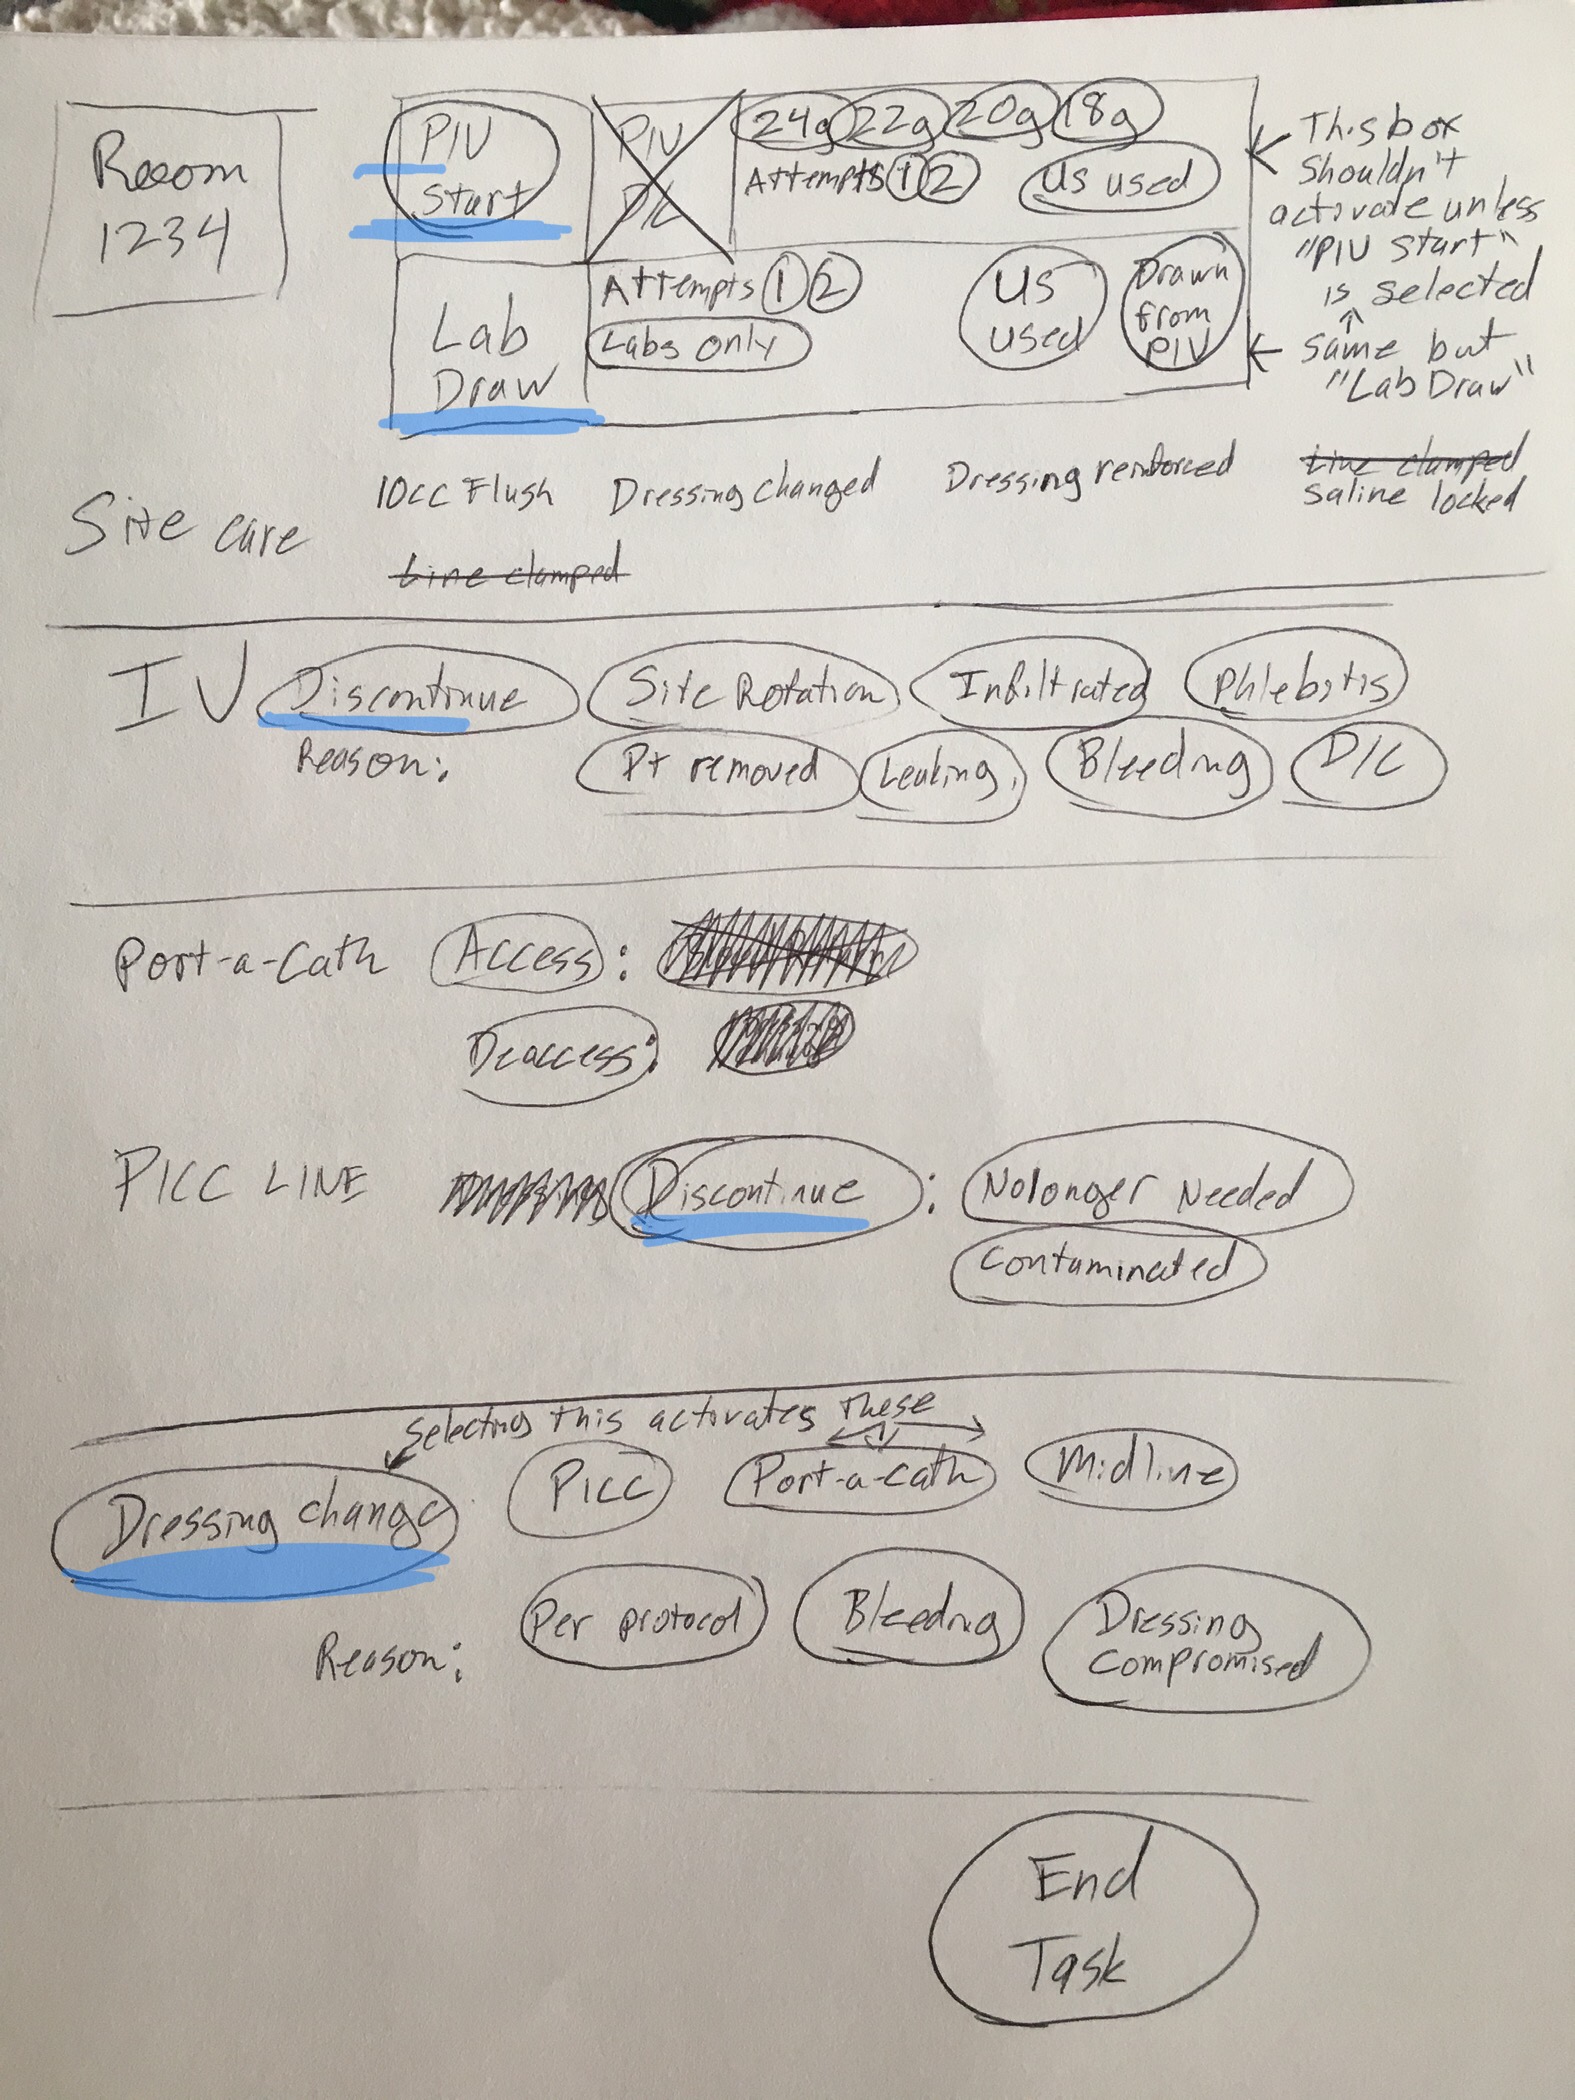 Reoom
1234
PIV
Start
PIV
D/C
24g 22g 20g 18g
Attempts 1 2 US used
This box
Shouldn't
activate unless
"PIV Start"
is selected
Lab
Draw
Attempts 1 2
Labs only
US
used
Drawn
from
PIV
same but
"Lab Draw"
Site care
10cc Flush Dressing changed Dressing reinforced
Line clamped
Saline locked
Line clamped
IV Discontinue Site Rotation Infiltrated Phlebitis
Reason: Pt removed Leaking Bleeding D/C
Port-a-Cath Access:
Deaccess:
PICC LINE Discontinue: No longer Needed
Contaminated
Selecting this activates these
Dressing change PICC Port-a-cath Midline
Reason: Per protocol Bleeding Dressing
compromised
End
Task